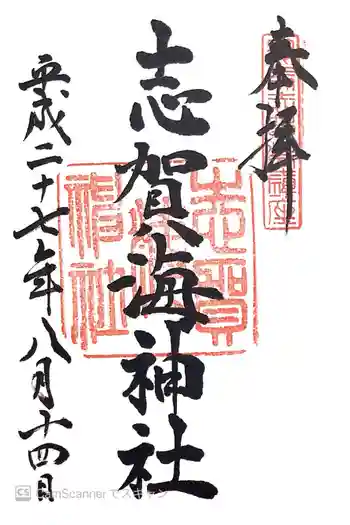 奉拝
志賀海神社
平成二十七年八月十四日
志賀海神社
CS CamScanner でスキャン